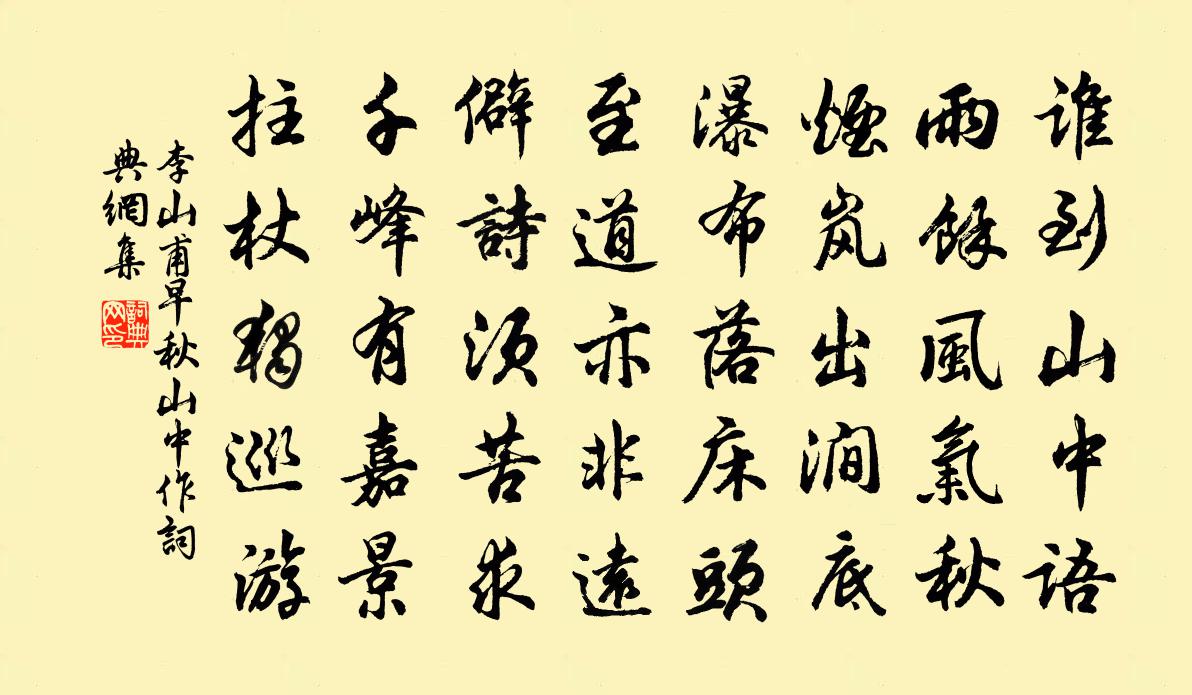 谁到山中語
雨餘風氣秋
煙岚出澗底
瀑布落床頭
至道亦非遠
僻詩須苦求
千峰有嘉景
拄杖獨巡游
李山甫早秋山中作詞
典網集
詞典
网印